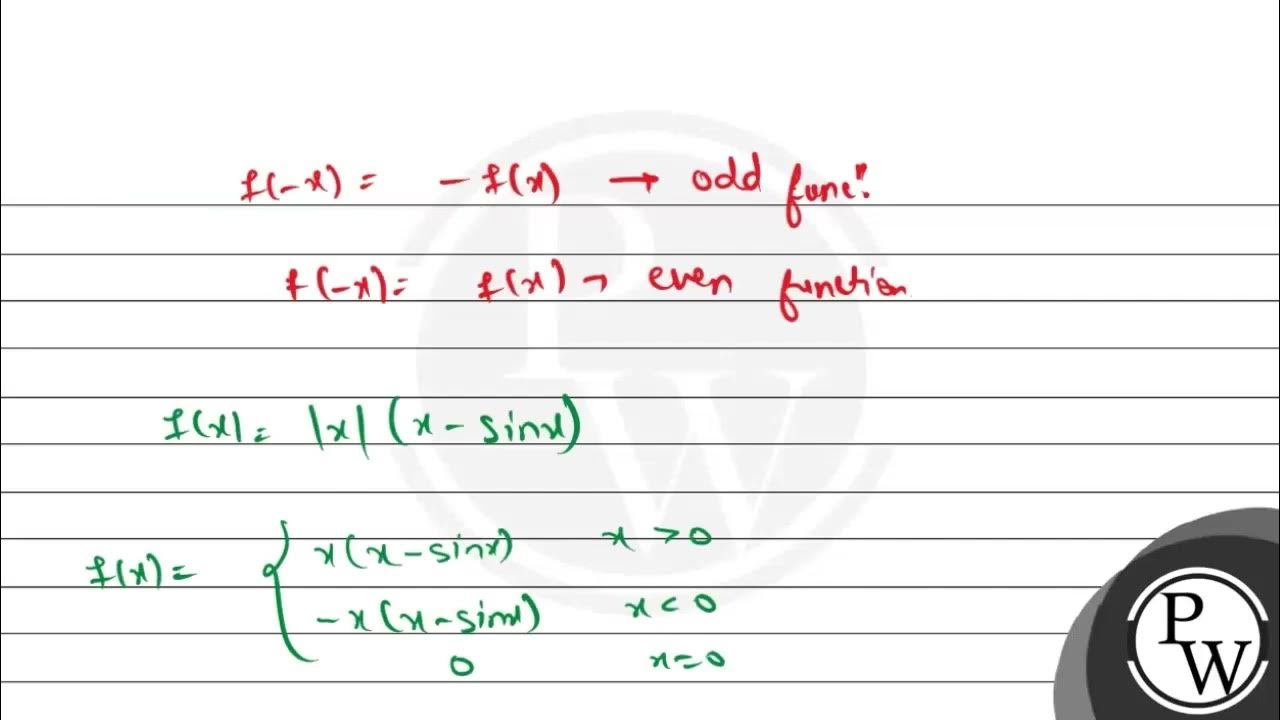 f(-x) = -f(x) → odd func!
f(-x) = f(x) → even function
f(x) = |x| (x - sinx)
f(x) = { x(x - sinx) x > 0
-x(x - sinx) x < 0
0 x = 0
P
W